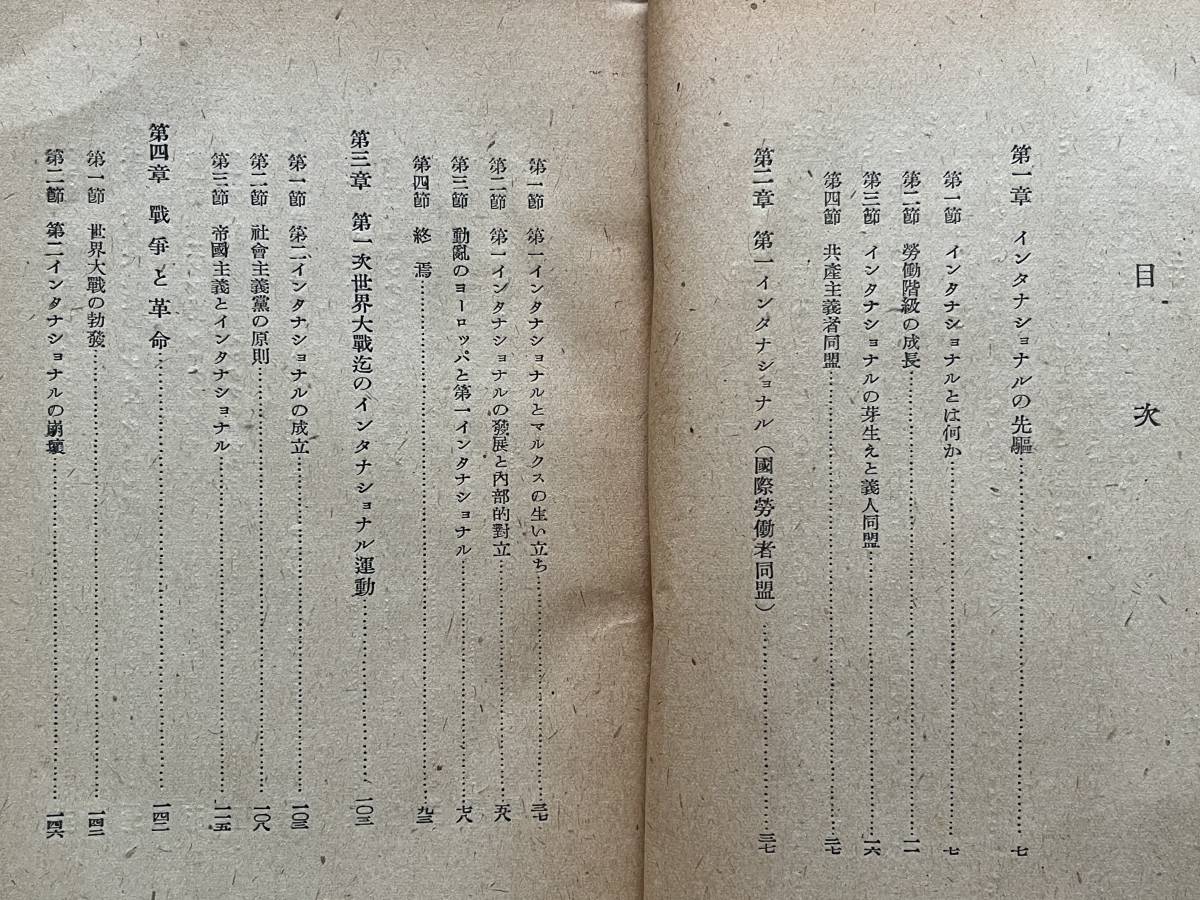 目次
第一章 インタナショナルの先驅……七
第一節 インタナショナルとは何か……七
第二節 勞働階級の成長……一一
第三節 インタナショナルの芽生えと義人同盟……一六
第四節 共產主義者同盟……二七
第二章 第一インタナショナル（國際勞働者同盟）……三七
第一節 第一インタナショナルとマルクスの生い立ち……三七
第二節 第一インタナショナルの發展と內部的對立……五八
第三節 動亂のヨーロッパと第一インタナショナル……七八
第四節 終焉……九三
第三章 第一次世界大戰迄のインタナショナル運動……一〇三
第一節 第二インタナショナルの成立……一〇三
第二節 社會主義黨の原則……一〇八
第三節 帝國主義とインタナショナル……一一五
第四章 戰爭と革命……一四二
第一節 世界大戰の勃發……一四二
第二節 第二インタナショナルの崩壞……一四六